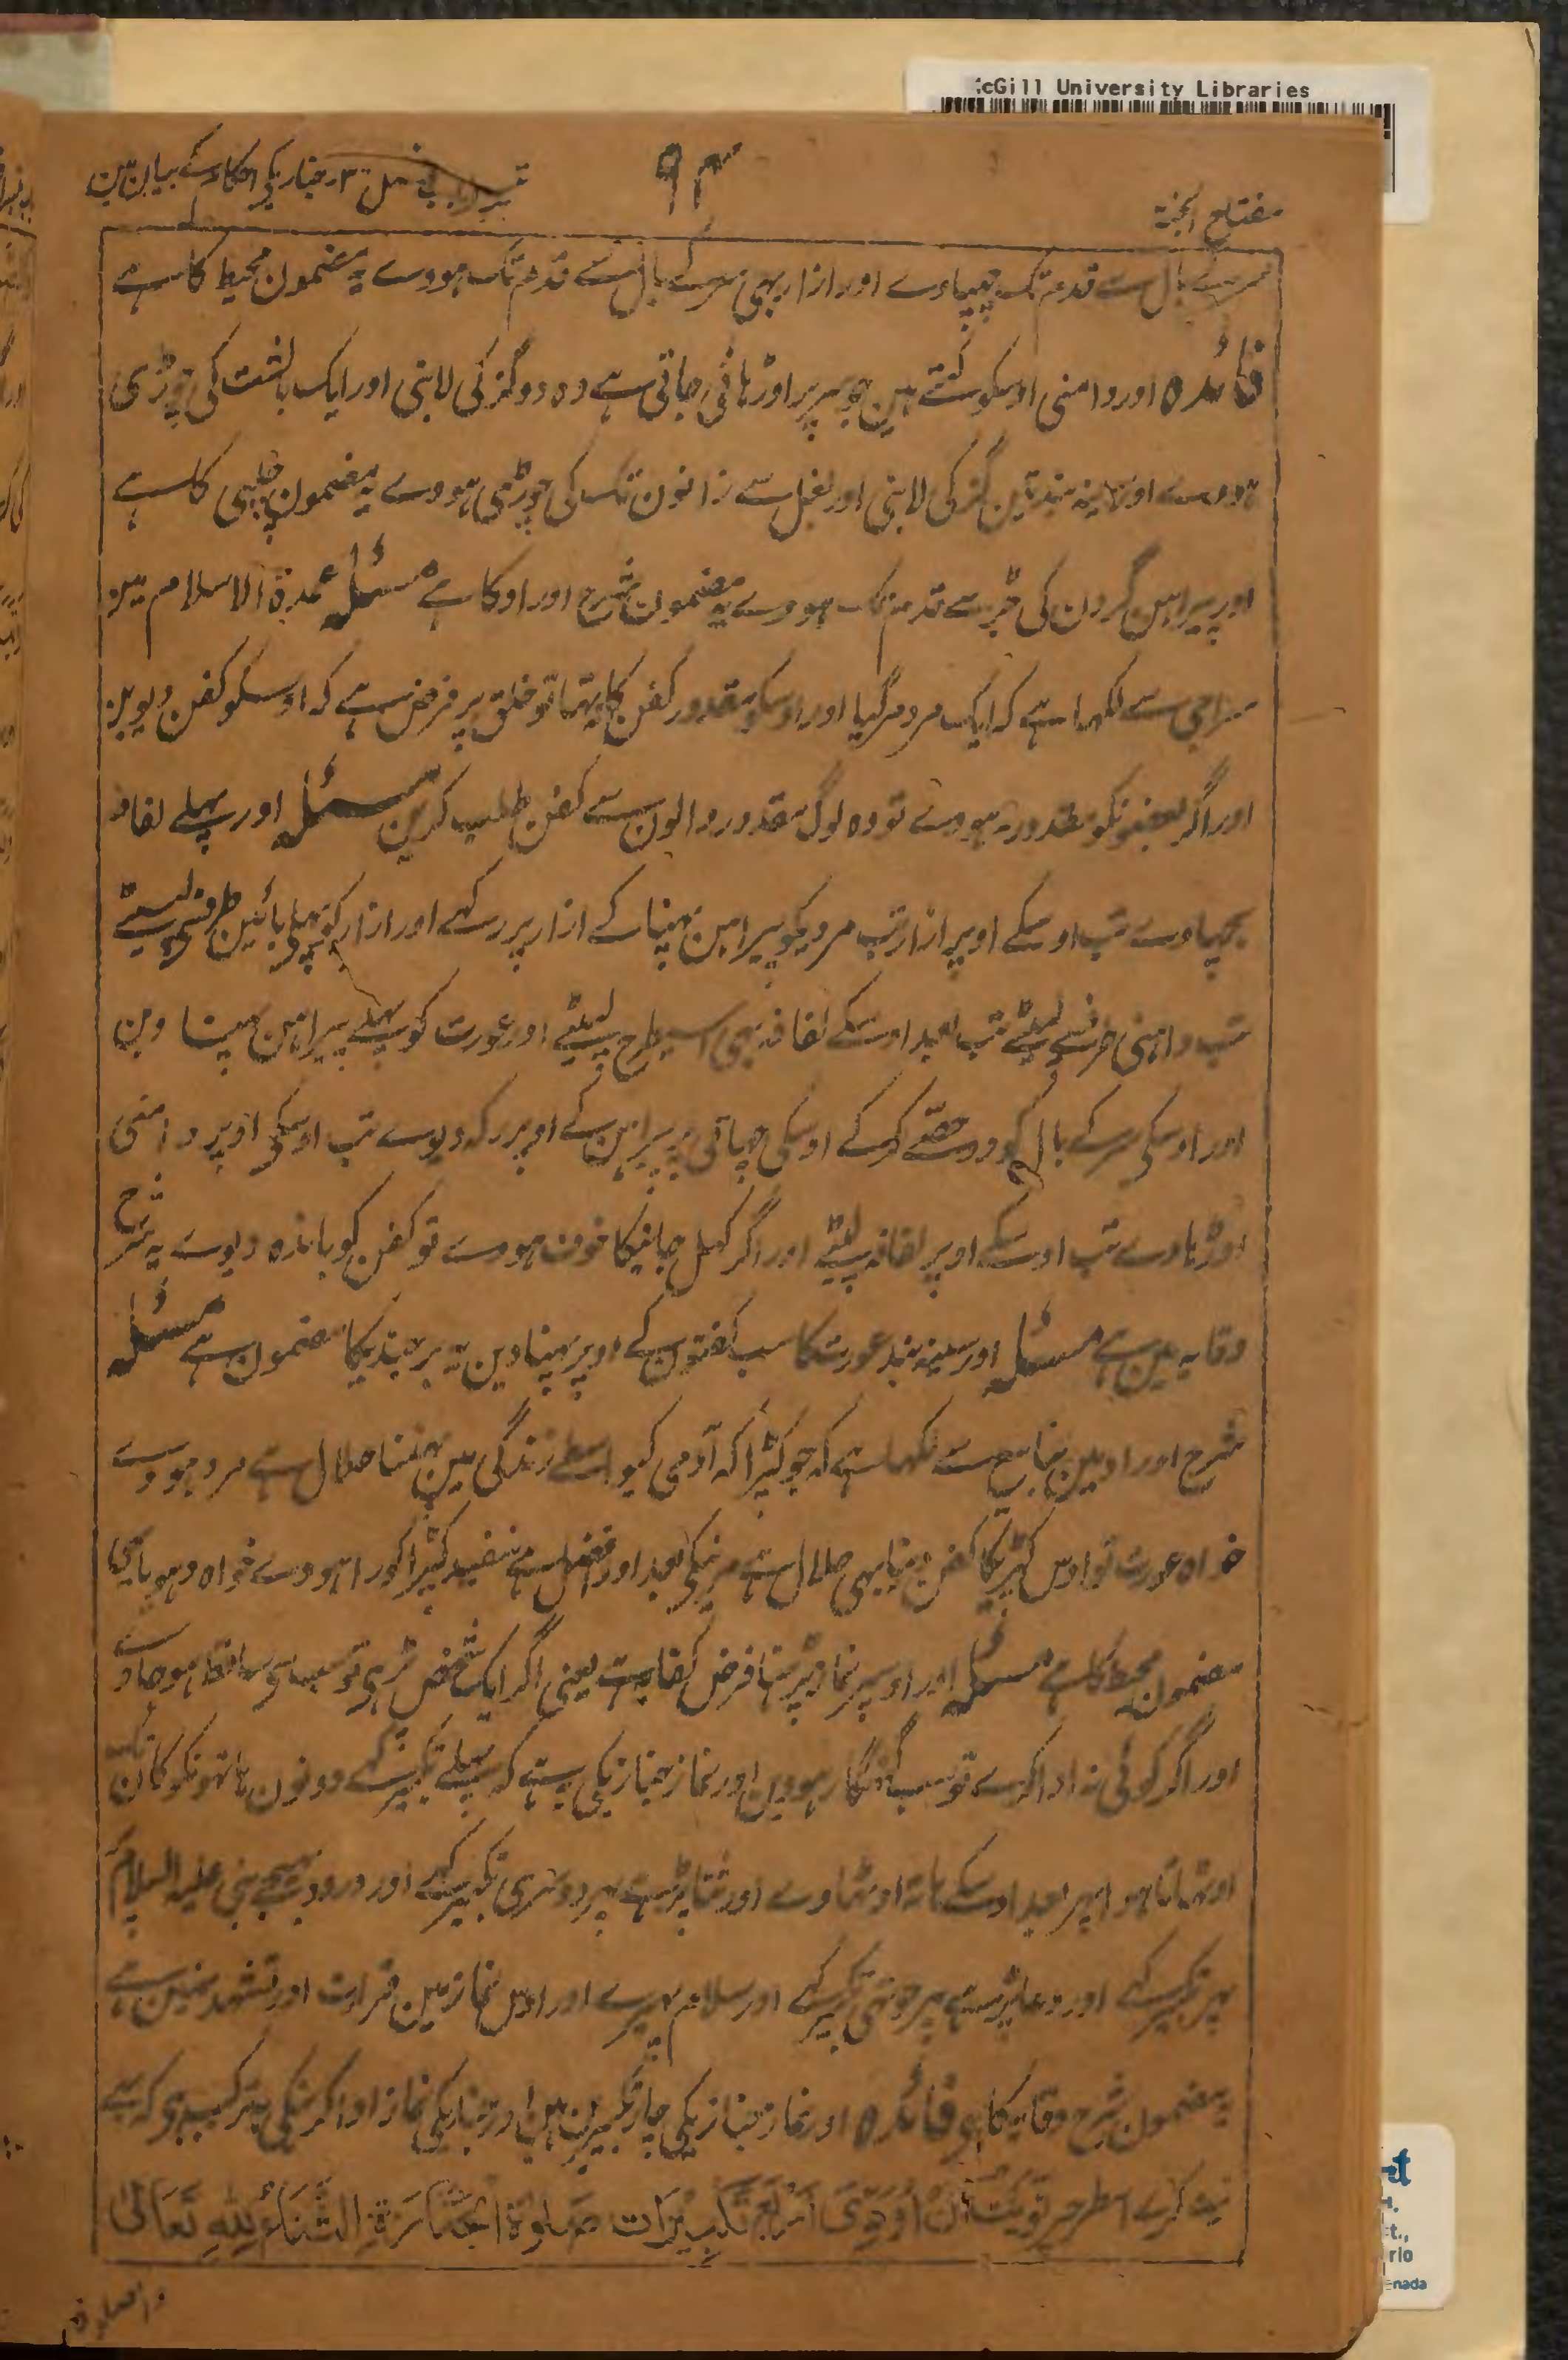 McGill University Libraries
مفتاح الجنة
۹۳
تیسرا باب فصل ۳۔ جنازیکی احکام کے بیان میں
سر کے بال سے قدم تک چھپاوے اور ازار بہی سر کے بال سے قدم تک ہووے یہ مضمون محیط کا ہے
فائدہ اور دامنی اوسکو کہتے ہین جو سر پر اوڑہائی جاتی ہے وہ دو گز کی لانبی اور ایک بالشت کی چوڑی
ہووے اور سینہ بند تین گز کی لانبی اور بغل سے زانون تک کی چوڑی ہووے یہ مضمون چلپی کا ہے
اور پیراہن گردن کی جڑ سے قدم تک ہووے یہ مضمون شرح اوراد کا ہے مسئلہ عمدۃ الاسلام مین
سراجی سے لکہا ہے کہ ایک مرد مر گیا اور اوسکو مقدور کفن کا نتہا تو خلق پر فرض ہے کہ اوسکو کفن دیوین
اور اگر بعضونکو مقدور نہووے تو وہ لوگ مقدور والون سے کفن طلب کرین مسئلہ اور پہلے لفافہ
بچہاوے تب اوسکے اوپر ازار تب مردیکو پیراہن پہنا کے ازار پر رکہے اور ازار کو پہلے بائین طرف سے لپیٹے
تب داہنی طرف سے لپیٹے تب بعد اوسکے لفافہ بہی اسیطرح لپیٹے اور عورت کو پہلے پیراہن پہنا وین
اور اوسکی سر کے بال کو دو حصّے کر کے اوسکی چہاتی پر پیراہن کے اوپر رکہ دیوے تب اوسکی اوپر دامنی
اوڑہاوے تب اوسکے اوپر لفافہ لپیٹے اور اگر کہل جانیکا خوف ہووے تو کفن کو باندہ دیوے یہ شرح
وقایہ مین ہے مسئلہ اور سینہ بند عورت کا سب کفنون کے اوپر پہنا دین یہ برجندیکا مضمون ہے مسئلہ
شرح اوراد مین ینابیع سے لکہا ہے کہ جو کپڑا کہ آدمی کیواسطے زندگی مین پہننا حلال ہے مرد ہووے
خواہ عورت تو اوس کپڑیکا کفن دینا بہی حلال ہے مرنیکی بعد اور افضل ہے سفید کپڑا کورا ہووے خواہ دہویا یہی
مضمون محیط کا ہے مسئلہ اور اوسپر نماز پڑہنا فرض کفایہ ہے یعنی اگر ایک شخص پڑہی تو سب سی ساقط ہو جاوے
اور اگر کوئی نہ ادا کرے تو سب گنہگار ہووین اور نماز جنازیکی یہ ہے کہ پہلے تکبیر کہے دونون ہاتہونکو کان تک
اوٹہاتا ہوا پہر بعد اوسکے ہاتہ اوٹہاوے اور ثنا پڑہے پہر دوسری تکبیر کہے اور درود بہیجے نبی علیہ السلام پر
پہر تکبیر کہے اور دعا پڑہے پہر چوتہی تکبیر کہے اور سلام پہیرے اور اوس نماز مین قرات اور تشہد نہین ہے
یہ مضمون شرح وقایہ کا ہی فائدہ اور نماز جنازیکی چار تکبیرین ہین اور جنازیکی نماز ادا کرنیکی یہ ترکیب ہی کہ پہلے
نیت کرے اسطرح پر نَوَیْتُ اَنْ اُوَدِّیَ اَرْبَعَ تَکْبِیْرَاتِ صَلٰوةِ الْجَنَازَةِ الثَّنَاءُ لِلّٰہِ تَعَالٰی